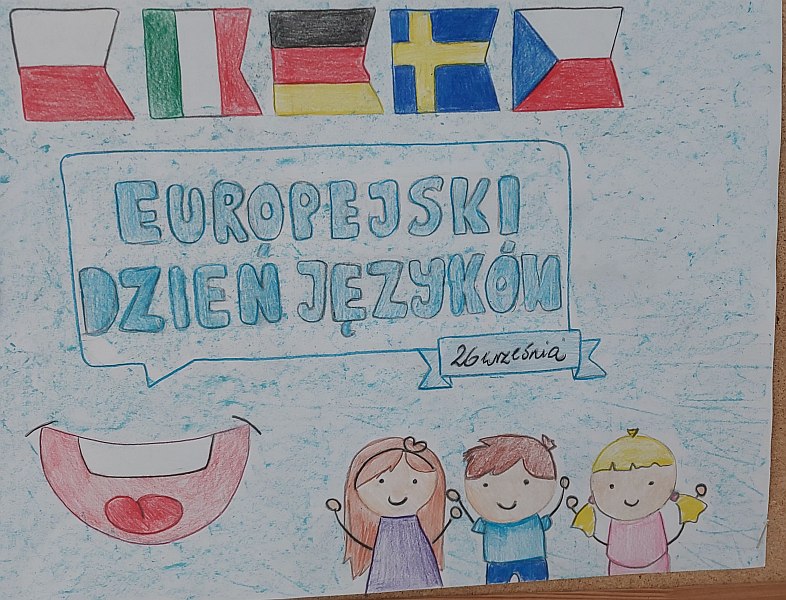 EUROPEJSKI
DZIEŃ JĘZYKÓW
26 września